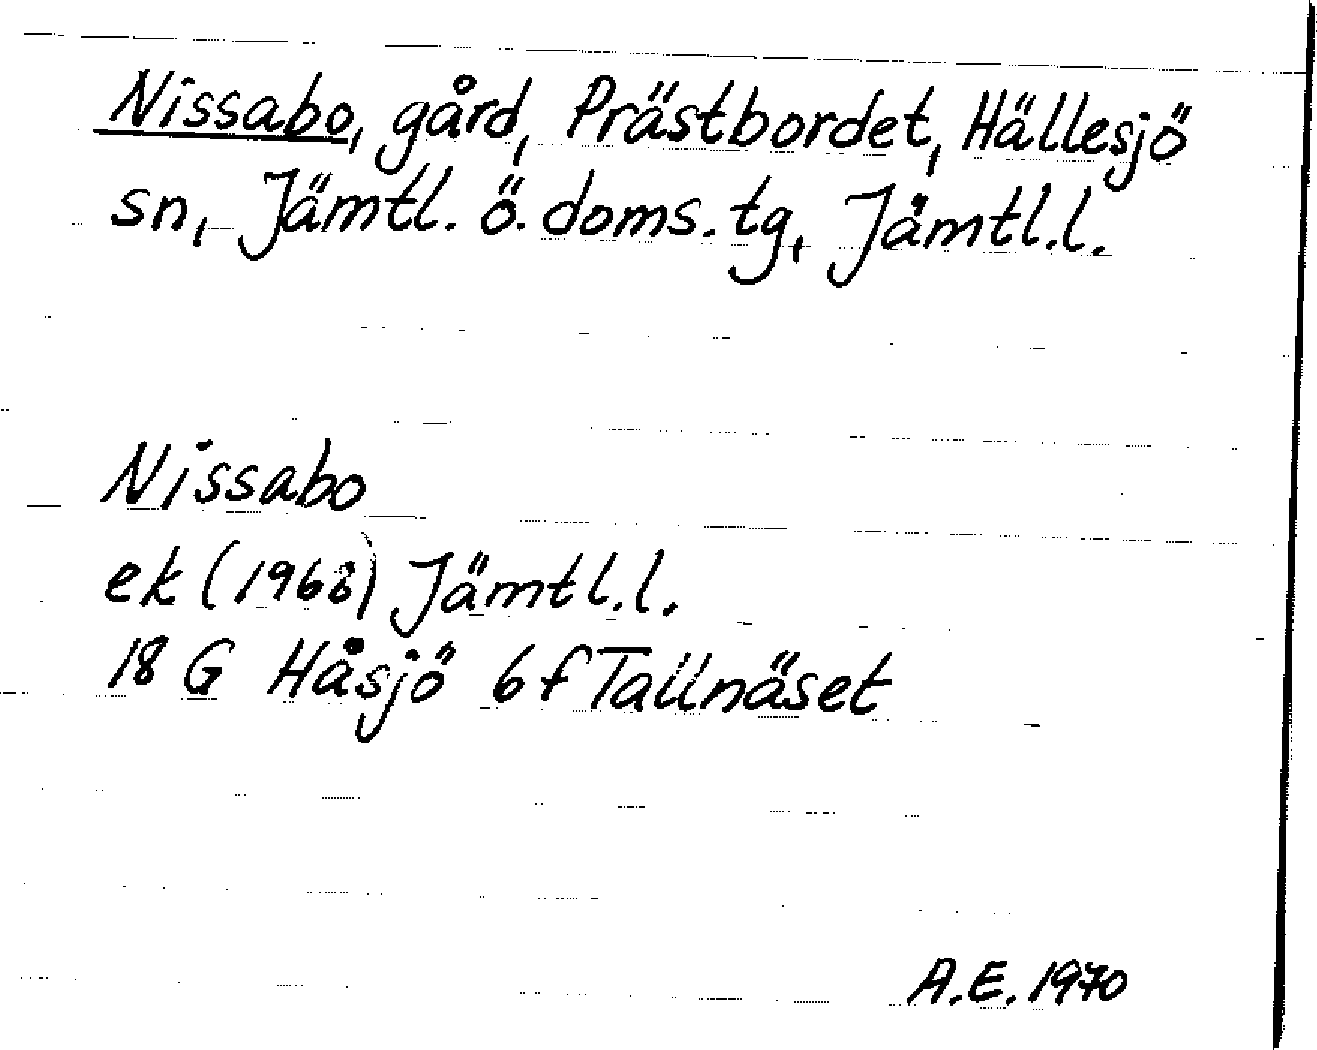 Nissabo, gård, Prästbordet, Hällesjö
sn, Jämtl. ö. doms. tg, Jämtl.l.
Nissabo
ek (1968) Jämtl.l.
18 G Håsjö 6 f Tallnäset
A.E. 1970